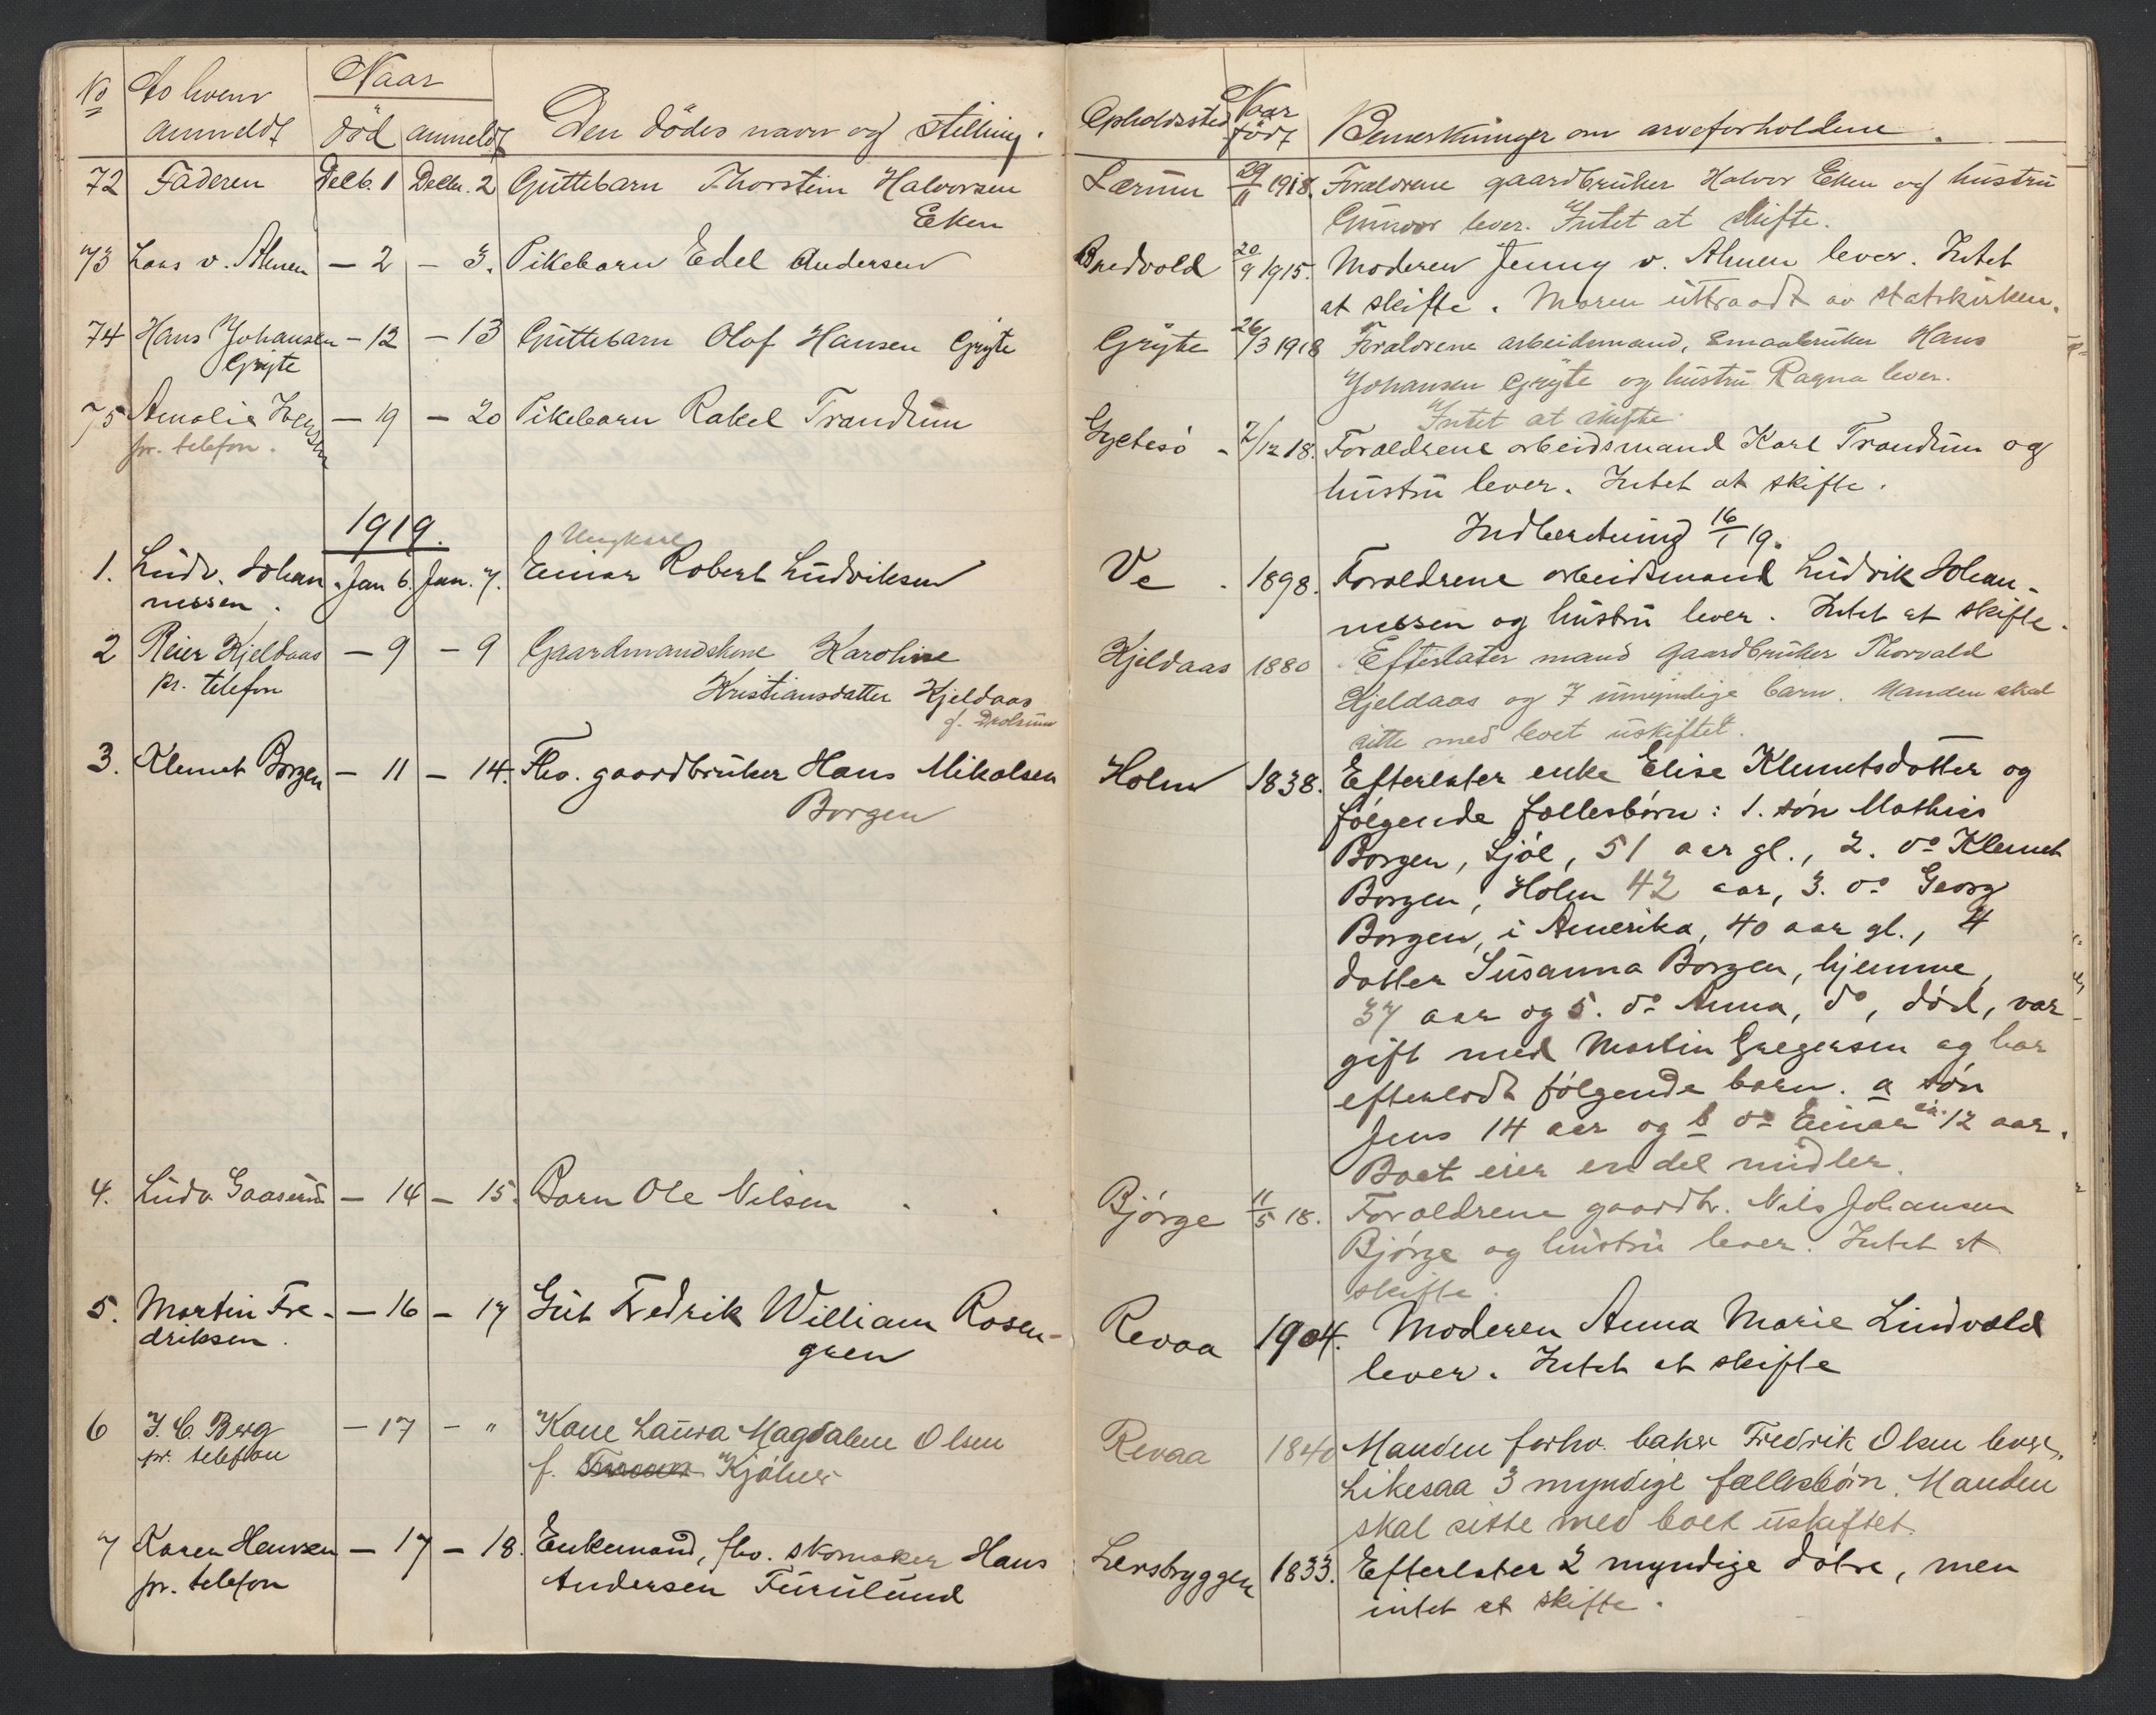 No Av hvem Naar
anmeldt död anmeldt Den dödes navn og stilling.
72 Faderen Decb. 1 Decbr. 2 Guttebarn Thorstein Halvorsen
Eken
73 Lars v. Almen — 2 — 3. Pikebarn Edel Andersen
74 Hans Johansen — 12 — 13 Guttebarn Olaf Hansen Gryte
Gryte
75 Amalie Iversen — 19 — 20 Pikebarn Rakel Trandum
pr. telefon.
1919.
Ungkarl
1. Ludv. Johan- Jan 6. Jan. 7. Einar Robert Ludviksen
nessen.
2 Reier Kjeldaas — 9 — 9 Gaardmandskone Karoline
pr. telefon Kristiansdatter Kjeldaas
f. Drolsum
3. Klemet Borgen — 11 — 14. Fhv. gaardbruker Hans Mikalsen
Borgen
4. Ludv Gaaserud — 14 — 15. Barn Ole Nilsen
5. Martin Fre- — 16 — 17 Gut Fredrik William Rosen-
driksen. gren
6 J. C. Berg — 17 — " Kone Laura Magdalene Olsen
pr. telefon f. Kjölner
7 Karen Hansen — 17 — 18. Enkemand, fhv. skomaker Hans
pr. telefon Andersen Furulund
Opholdssted Naar født Bemerkninger om arveforholdene.
Lærum 29/11 1918. Forældrene gaardbruker Halvor Eken og hustru
Gunvor lever. Intet at skifte.
Bredvold 20/9 1915. Moderen Jenny v. Almen lever. Intet
at skifte. Moren uttraadt av statskirken.
Gryte 26/3 1918 Forældrene arbeidsmand, smaabruker Hans
Johansen Gryte og hustru Ragna lever.
Intet at skifte.
Gjetesö - 2/12 18. Forældrene arbeidsmand Karl Trandum og
hustru lever. Intet at skifte.
Indberetning 16/1 19.
Ve . 1898. Forældrene arbeidsmand Ludvik Johan-
nessen og hustru lever. Intet at skifte.
Kjeldaas 1880 Efterlater mand gaardbruker Thorvald
Kjeldaas og 7 umyndige barn. Manden skal
sitte med boet uskiftet.
Holm 1838. Efterlater enke Elise Klemetsdatter og
følgende fællesbørn: 1. søn Mathias
Borgen, Sjöl, 51 aar gl., 2. do Klemet
Borgen, Holm 42 aar, 3. do Georg
Borgen, i Amerika, 40 aar gl., 4
datter Susanna Borgen, hjemme,
37 aar og 5. do Anna, do, død, var
gift med Martin Gregersen og har
efterladt følgende barn. a søn
Jens 14 aar og b do Einar ca. 12 aar.
Boet eier en del midler.
Bjørge 11/5 18. Forældrene gaardbr. Nils Johansen
Bjørge og hustru lever. Intet at
skifte.
Revaa 1904. Moderen Anna Marie Lindvold
lever. Intet at skifte
Revaa 1840 Manden forhv. baker Fredrik Olsen lever,
Likesaa 3 myndige fællesbörn. Manden
skal sitte med boet uskiftet.
Lersbryggen 1833. Efterlater 2 myndige døtre, men
intet at skifte.